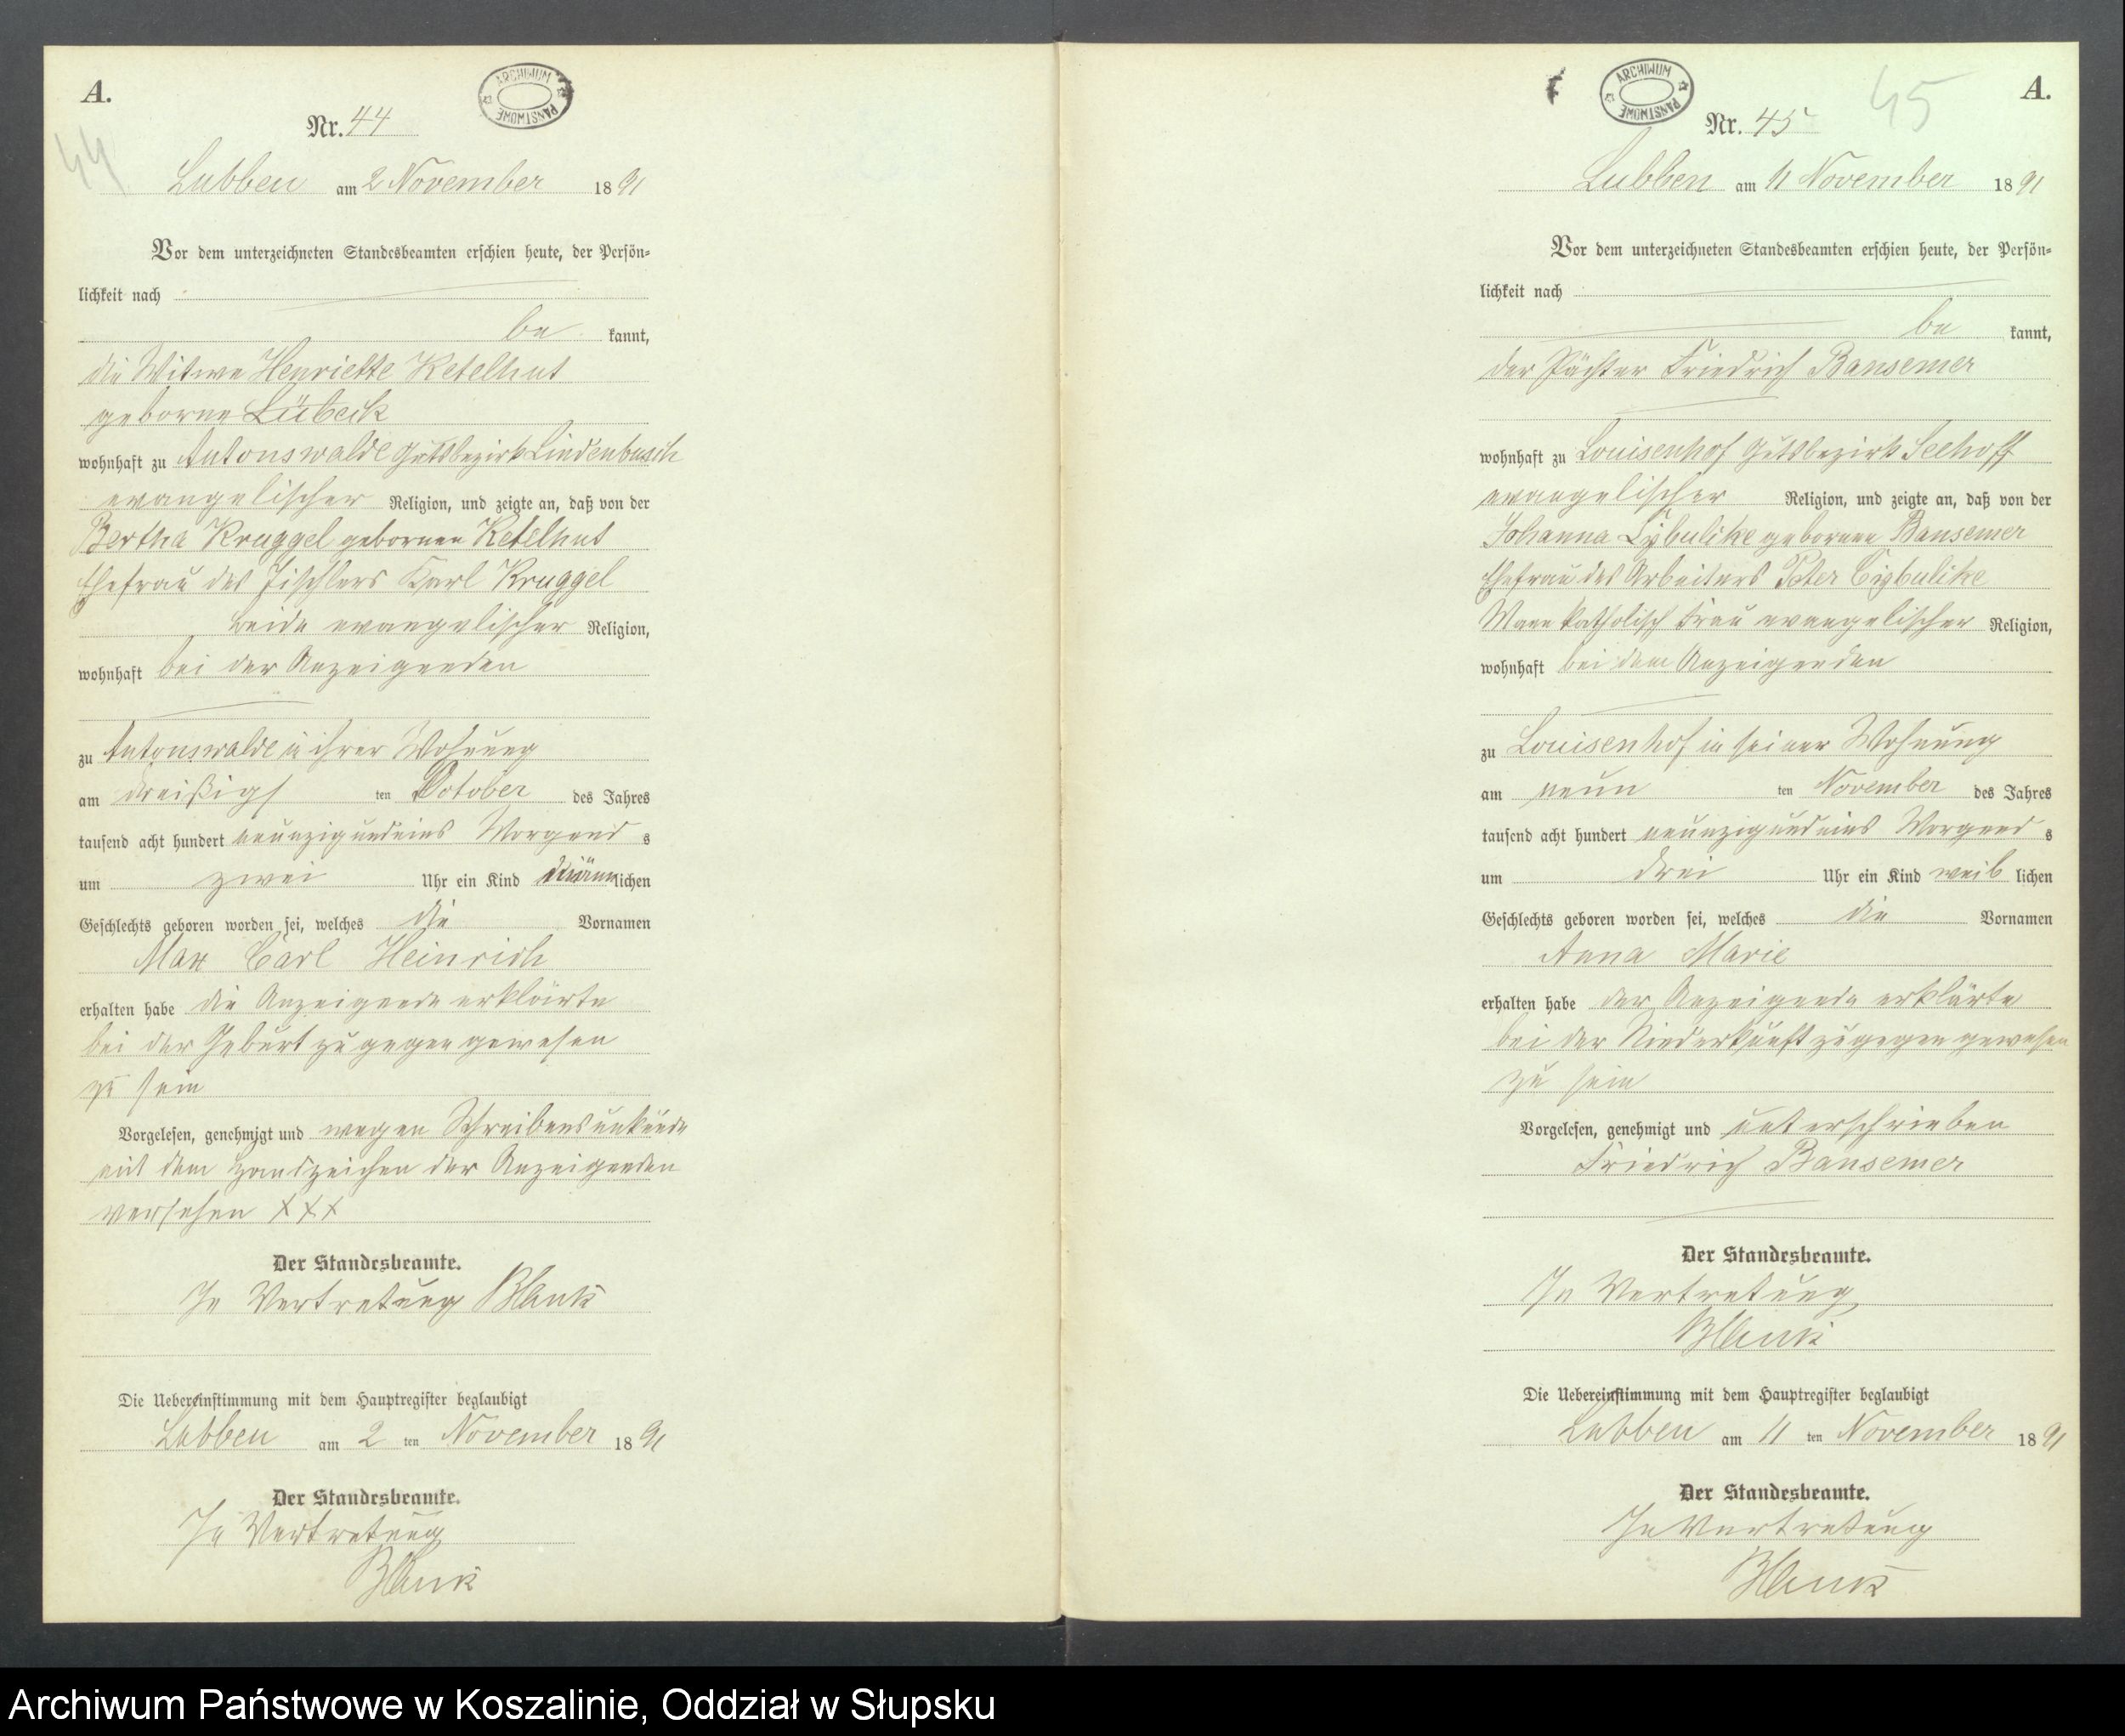 A.
ARCHIWUM PAŃSTWOWE
Nr. 44
44
Lubben am 2 November 1891
Vor dem unterzeichneten Standesbeamten erschien heute, der Persön-
lichkeit nach
be kannt,
die Witwe Henriette Ketelhut
geborne Lübeck
wohnhaft zu Antonswalde Gutsbezirk Lindenbusch
evangelischer Religion, und zeigte an, daß von der
Bertha Kruggel gebornen Ketelhut
Ehefrau des Tischlers Karl Kruggel
beide evangelischer Religion,
wohnhaft bei der Anzeigenden
zu Antonswalde in ihrer Wohnung
am dreißigs ten October des Jahres
tausend acht hundert neunzigundeins Morgend s
um zwei Uhr ein Kind männlichen
Geschlechts geboren worden sei, welches die Vornamen
Max Carl Heinrich
erhalten habe die Anzeigende erklärte
bei der Geburt zugegen gewesen
zu sein
Vorgelesen, genehmigt und wegen Schreibensunkunde
mit dem Handzeichen der Anzeigenden
versehen XXX
Der Standesbeamte.
In Vertretung Blank
Die Uebereinstimmung mit dem Hauptregister beglaubigt
Lubben am 2 ten November 1891
Der Standesbeamte.
In Vertretung
Blank
A.
ARCHIWUM PAŃSTWOWE
45
Nr. 45
Lubben am 11 November 1891
Vor dem unterzeichneten Standesbeamten erschien heute, der Persön-
lichkeit nach
be kannt,
der Pächter Friedrich Bansemer
wohnhaft zu Louisenhof Gutsbezirk Seehoff
evangelischer Religion, und zeigte an, daß von der
Johanna Cybulike gebornen Bansemer
Ehefrau des Arbeiters Peter Cybulike
Mann katholisch Frau evangelischer Religion,
wohnhaft bei dem Anzeigenden
zu Louisenhof in seiner Wohnung
am neun ten November des Jahres
tausend acht hundert neunzigundeins Morgend s
um drei Uhr ein Kind weib lichen
Geschlechts geboren worden sei, welches die Vornamen
Anna Marie
erhalten habe der Anzeigende erklärte
bei der Niederkunft zugegen gewesen
zu sein
Vorgelesen, genehmigt und unterschrieben
Friedrich Bansemer
Der Standesbeamte.
In Vertretung
Blank
Die Uebereinstimmung mit dem Hauptregister beglaubigt
Lubben am 11 ten November 1891
Der Standesbeamte.
In Vertretung
Blank
Archiwum Państwowe w Koszalinie, Oddział w Słupsku